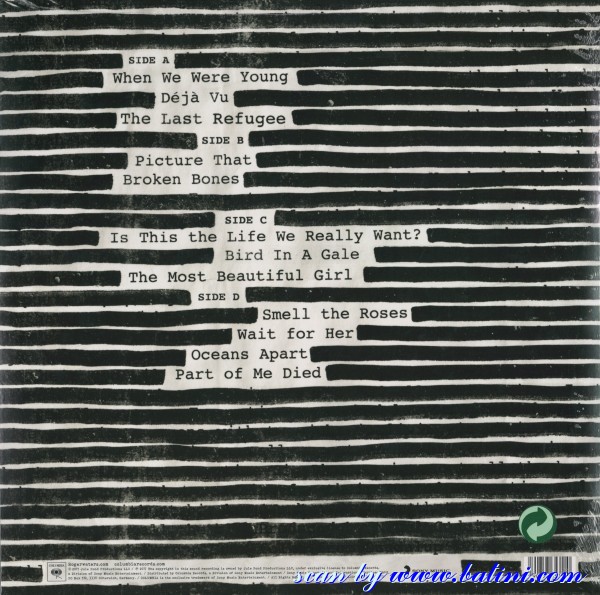 SIDE A
When We Were Young
Déjà Vu
The Last Refugee
SIDE B
Picture That
Broken Bones
SIDE C
Is This the Life We Really Want?
Bird In A Gale
The Most Beautiful Girl
SIDE D
Smell the Roses
Wait for Her
Oceans Apart
Part of Me Died
rogerwaters.com columbiarecords.com
scan by www.batini.com